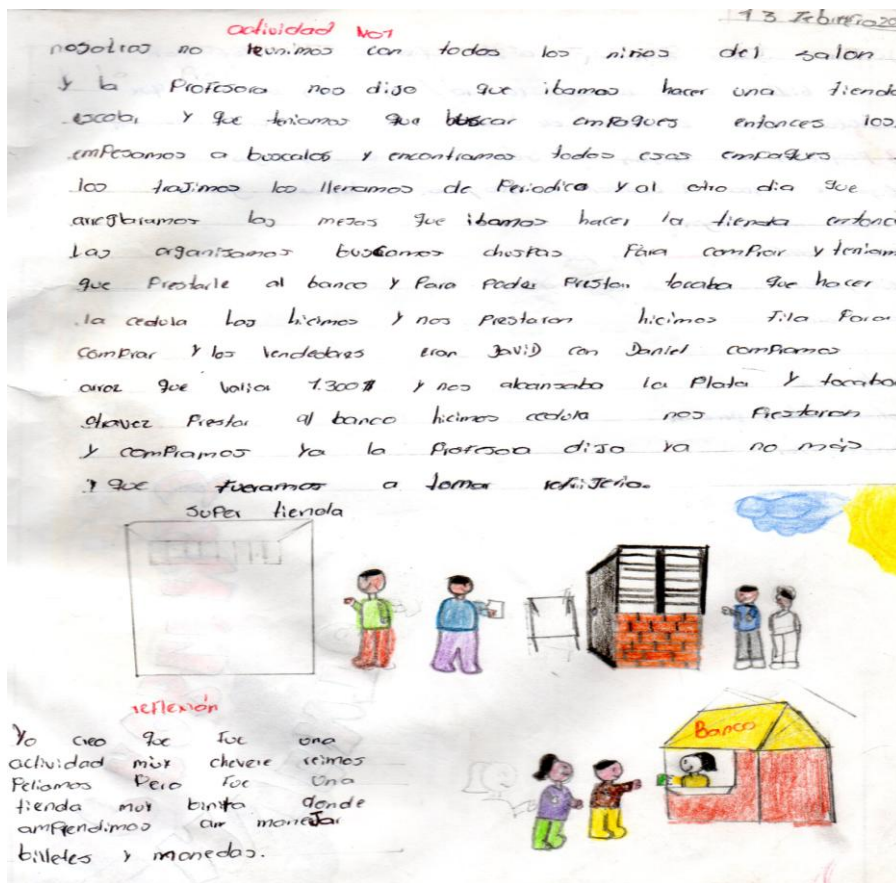 13 Febrero 20
actividad No1
nosotras no reunimos con todos los niños del salon
y la Profesora nos dijo que ibamos hacer una tienda
escobi y que teniamos que buscar empaques entonces los
empesamos a buscalos y encontramos todos esos empaques
los trajimos los llenamos de Periodico y al otro dia que
arreglaramos las mesas que ibamos hacer la tienda entonc
las organisamos buscamos chuspas Para comprar y teniam
que Prestarle al banco y Para poder Prestar tocaba que hacer
la cedula Los hicimos y nos Prestaron hicimos fila Para
comprar y los vendedores eran DaviD con Daniel compramos
arroz que valia 1.300$ y nos alcansaba la Plata y tocaba
otravez Prestar al banco hicimos cedula nos Prestaron
y compramos ya la Profesora dijo ya no más
y que fueramos a tomar refrijerio.
super tienda
reflexión
Yo creo que fue una
actividad muy chevere reimos
Peliamos Pero fue una
tienda muy binita donde
amprendimos a manejar
billetes y monedas.
Banco